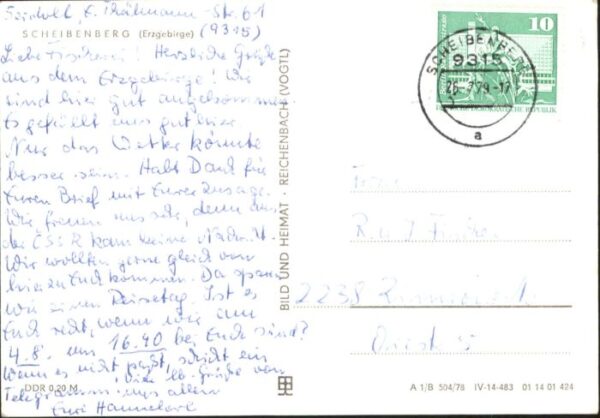 Seidel, E. Thälmann-Str. 61
(9315)
SCHEIBENBERG (Erzgebirge)
Liebe ! Herzliche Grüße
aus dem Erzgebirge! Wir
sind hier gut angekommen
Es gefällt uns gut hier
Nur das Wetter könnte
besser sein. Habt Dank für
Euren Brief mit Eurer Zusage.
Wir freuen uns sehr, denn aus
der ČSSR kam keine Nachricht.
Wir wollten gerne gleich von
hier zu Euch kommen. Da sparen
wir einen Reisetag. Ist es
Euch recht, wenn wir am
4.8. um 16.40 bei Euch sind?
Wenn es nicht paßt, schickt ein
Telegramm. Viele lb. Grüße von
uns allen
Eure Hannelore
DDR 0,20 M
BILD UND HEIMAT · REICHENBACH (VOGTL)
SCHEIBENBERG
9315
79-17
a
10
DEUTSCHE DEMOKRATISCHE REPUBLIK
2238
A 1/B 504/78 IV-14-483 01 14 01 424